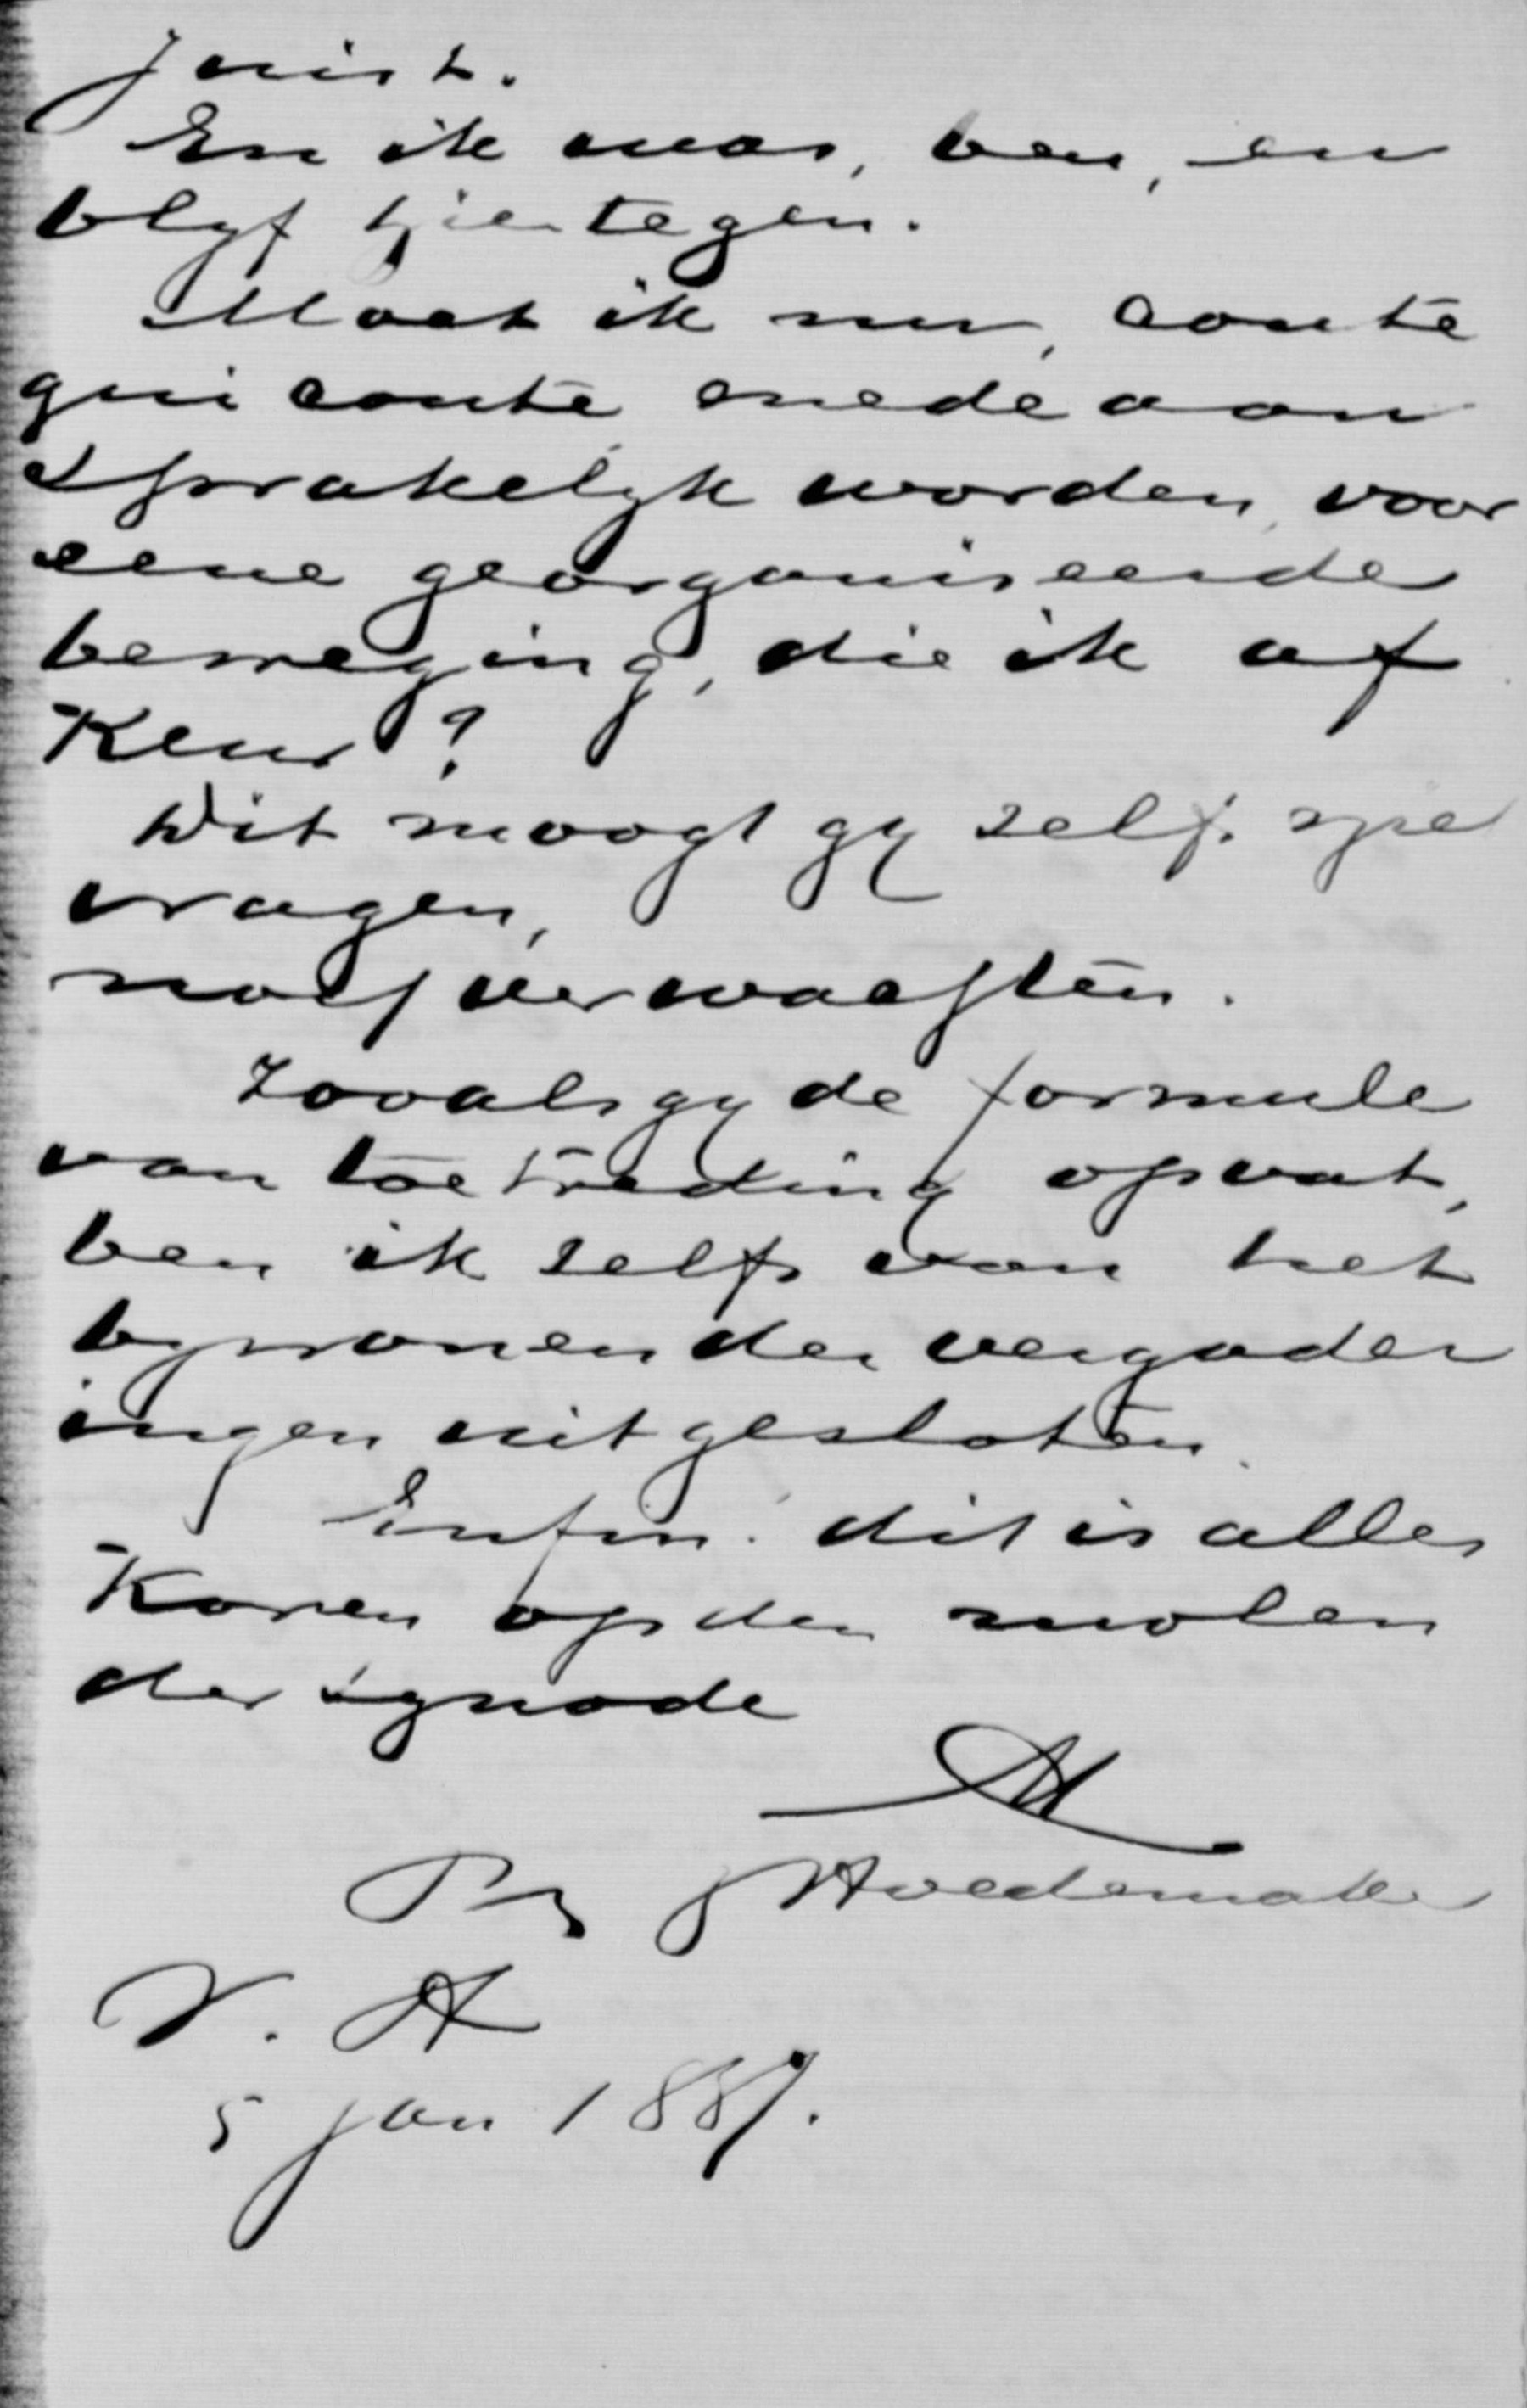 juist.
En ik was, ben, en
blyf hier tegen.
Moet ik nu, coute
qui coute mede aan
sprakelyk worden, voor
eene georganiseerde
beweging, die ik af
Keur?
Dit moogt gy zelfs niet
vragen,
noch verwachten.
Zooals gy de formule
van toetreding opvat,
ben ik zelfs van het
bywonen der vergader
ingen uitgesloten.
Enfin. dit is alles
Koren op den molen
der synode
Hoedemaker
V. A
5 jan 1887.